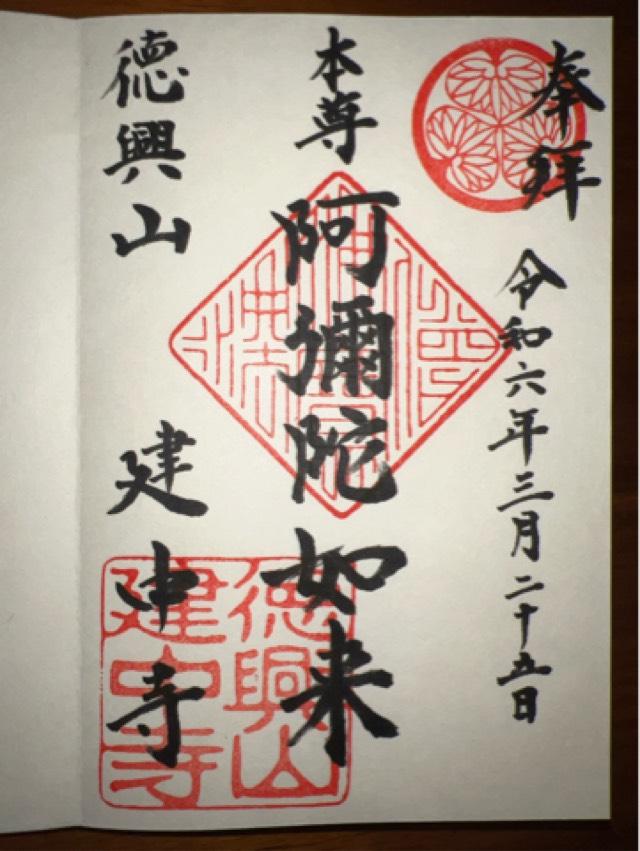 奉拜
令和六年三月二十五日
本尊
阿彌陀如来
德興山
建中寺
德興山
建中寺